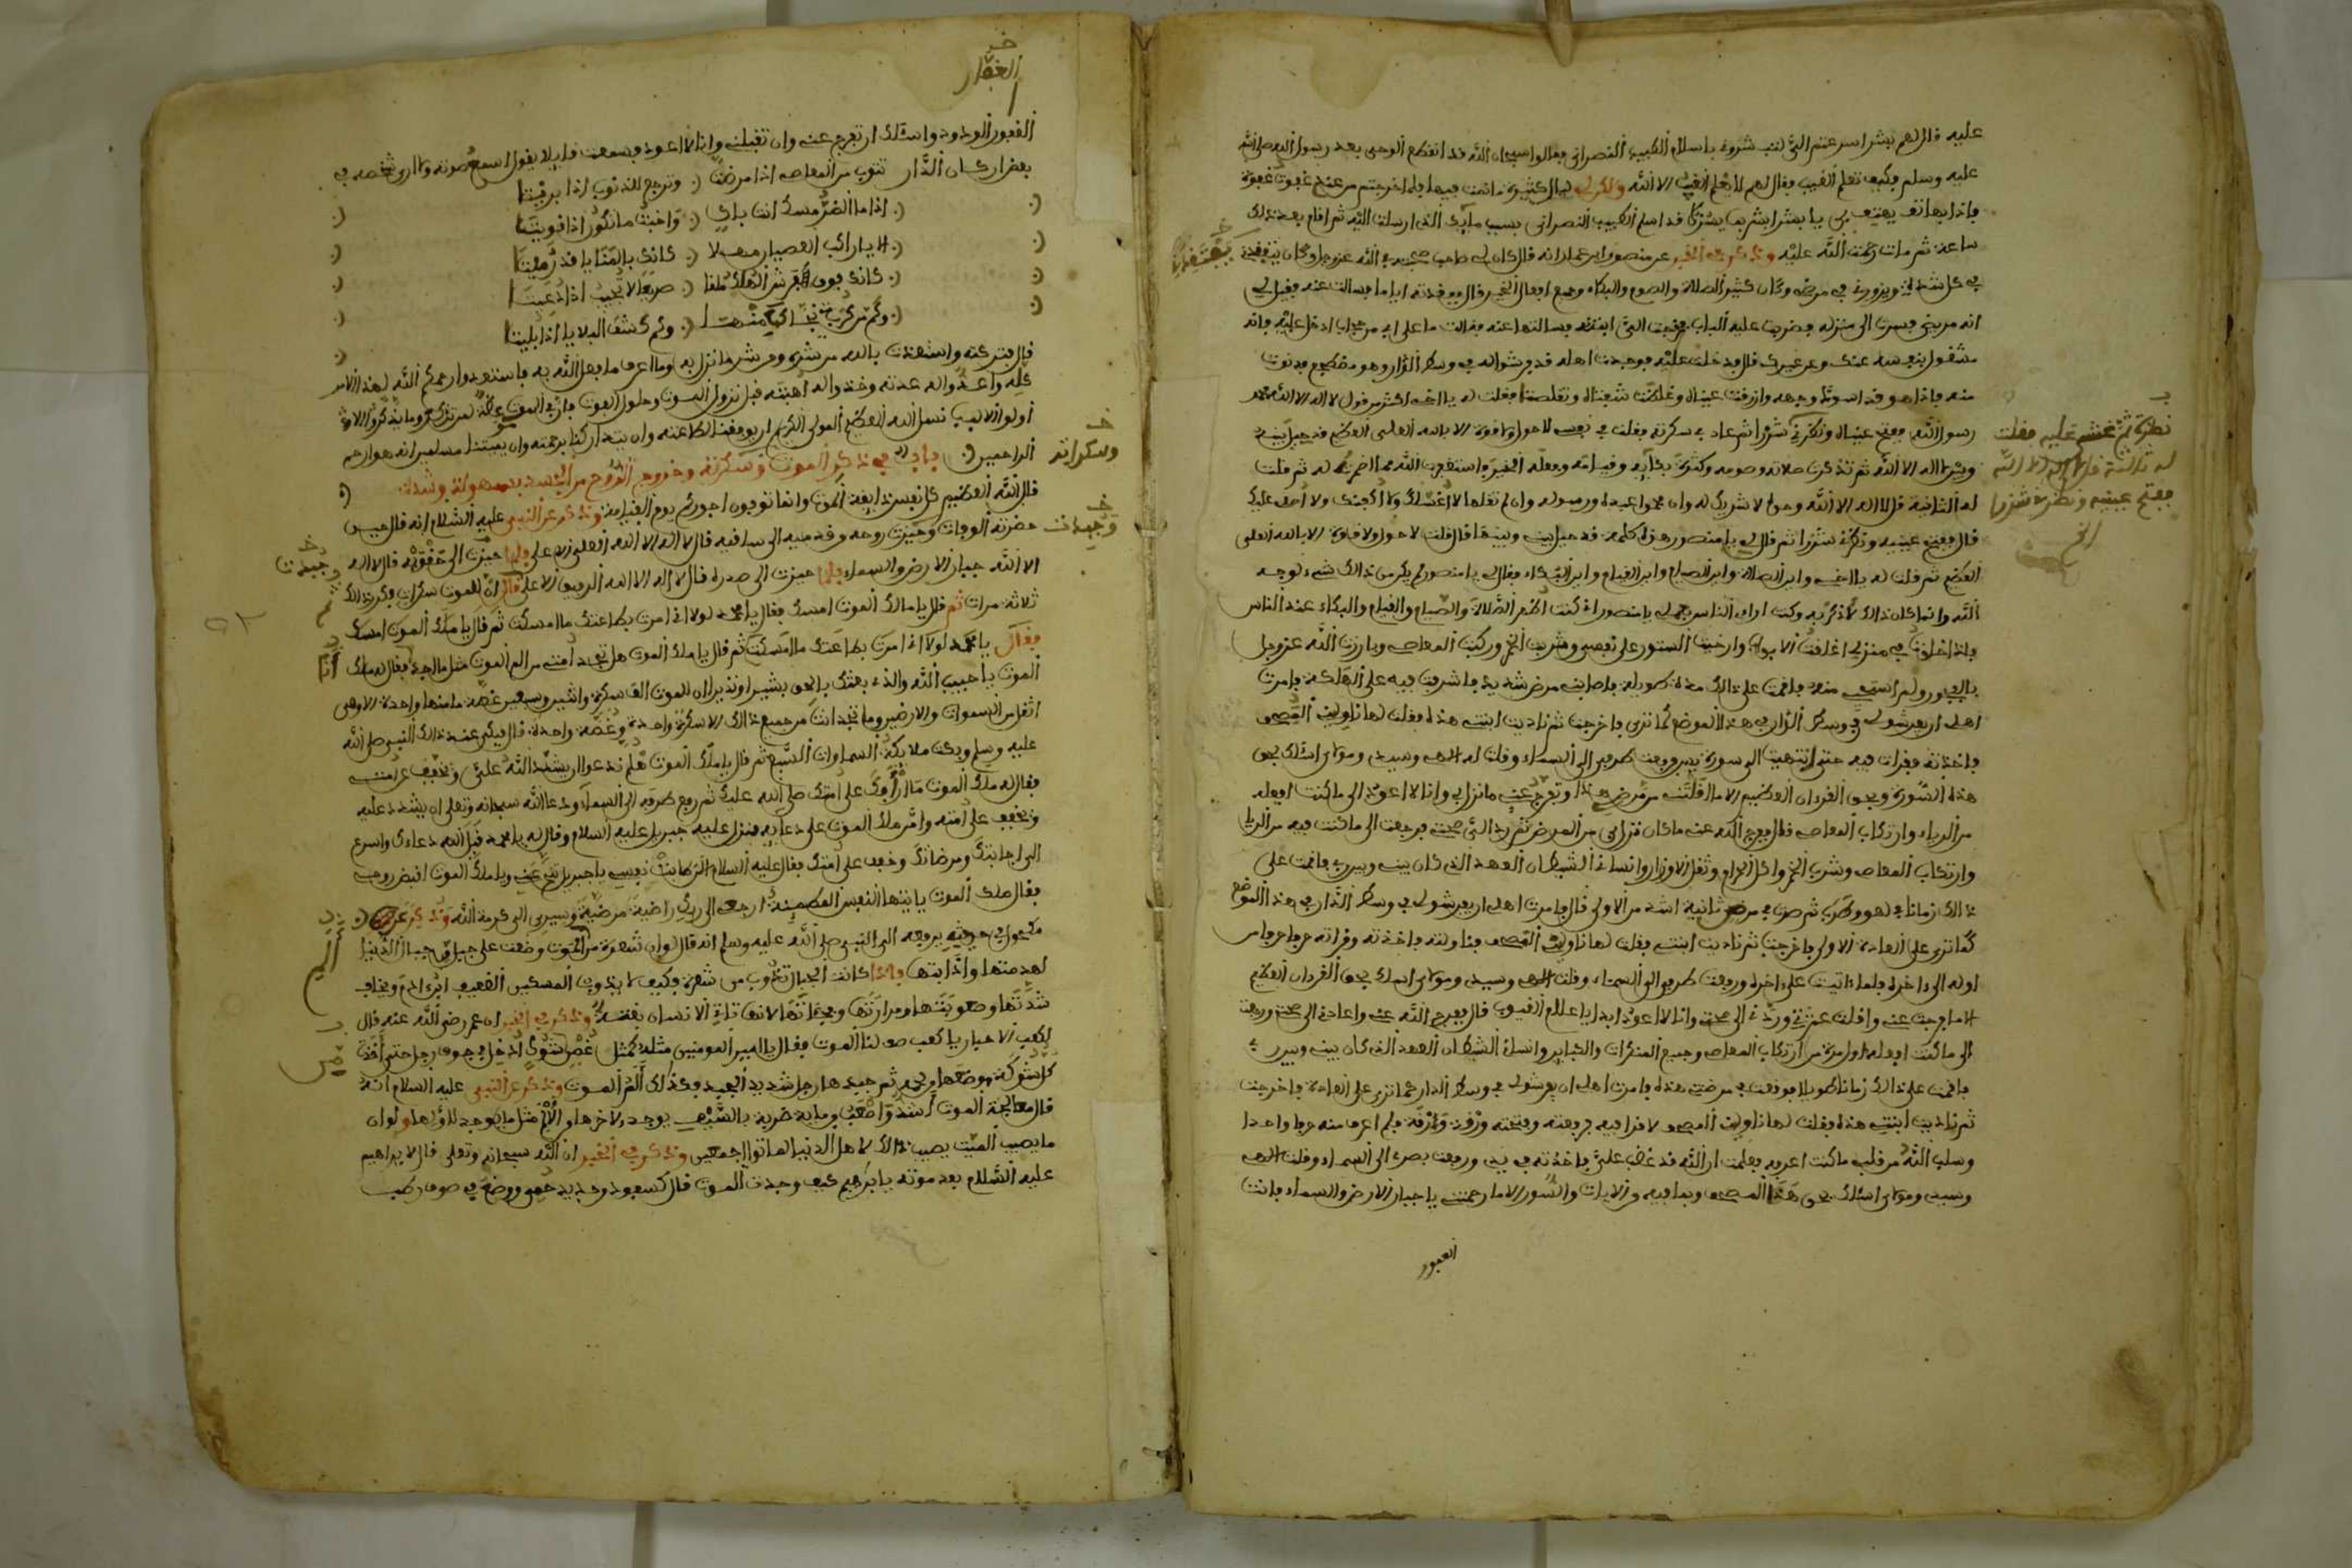 عليه قال لهم بشر اسرعتم الى نتبشرون باسلام الطبيب النصراني فقالوا سبحان الله قد انقطع الوحي بعد رسول الله صلى الله
عليه وسلم فكيف تعلم الغيب فقال لهم لا يعلم الغيب الا الله
فاذا بهاتف يهتف بي يا بشر ابشر قد اسلم الطبيب النصراني بسبب مايك الذي ارسلت اليه ثم اقام بعد ذلك
ساعة ثم مات رحمت الله عليه وذكر في الخبر عن منصور ابن عمار انه قال كان لي صاحب
في كل شدة ويزورني في مرضي وكان كثير الصلاة والصوم والبكاء وجميع افعال الخير قال ففقدته اياما فسالت عنه فقيل لي
انه مريض فسرت الى منزله فضربت عليه الباب فخرجت الي ابنته فسالتها عنه فقالت
مشغول بنفسه عنك وعن غيرك قال فدخلت عليه فوجدت اهله قد فرشوا له في وسط الدار وهو مضطجع فدنوت
منه فاذا هو قد اسود وجهه وازرقت عيناه وغلظت شفتاه وتقلصتا فقلت له يا اخي اكثر من قول لا اله الا الله محمد
رسول الله ففتح عيناه ونظرني شزرا ثم عاد في سكرته فقلت في نفسي لا حول ولا قوة الا بالله العلي العظيم قد حيل بينه
وبين لا اله الا الله ثم تذكرت صلاته وصومه وكثرة بكايه وقيامه وفعله الخير
له الثانية قل لا اله الا الله وحده لا شريك له وان محمدا عبده ورسوله وان لم تقلها لا اغسلك ولا اكفنك ولا اصلي عليك
قال ففتح عينيه ونظرني شزرا ثم قال لي يا منصور هذه كلمة قد حيل بيني وبينها قال قلت لا حول ولا قوة الا بالله العلي
العظيم ثم قلت له يا اخي واين الصلاة واين الصيام واين القيام واين البكاء فقال لي يا منصور لم يكن من ذلك شيء لوجه
الله وانما كان ذلك لاذكر به وكنت ارائي الناس بعملي يا منصور اذ كنت اظهر الصلاة والصيام والقيام والبكاء عند الناس
فاذا خلوت في منزلي اغلقت الابواب وارخيت الستور على نفسي وشربت الخمر وركبت المعاصي وبارزت الله عز وجل
بالفجور ولم استحي منه فاقمت على ذلك مدة طويلة فاصابني مرض شديد فاشرفت فيه على الهلكة فامرت
اهلي ان يفرشوا لي في وسط الدار في هذا الموضع كما ترى فاخرجت ثم ناديت ابنتي هذه فقلت لها ناوليني المصحف
فاخذته فقرات فيه حتى انتهيت الى سورة يس ورفعت طرفي الى السماء وقلت له الهي وسيدي ومولاي اسئلك بحق
هذه السورة وبحق القرءان العظيم الا ما اقلتني من مرضي هذا وتفرج عني ما نزل بي وانا لا اعود الى ما كنت افعله
من الرياء وارتكاب المعاصي قال ففرج الله عني ما كان نزل بي من المرض ثم رد الي صحتي فرجعت الى ما كنت فيه من الريا
وارتكاب المعاصي وشرب الخمر واكل الحرام وثقل الاوزار وانساني الشيطان العهد الذي كان بيني وبين ربي فاقمت على
ذلك زمانا في لهو وطرب ثم مرضت مرضة ثانية اشد من الاولى قال فامرت اهلي ان يفرشوا لي في وسط الدار في هذا الموضع
كما ترى على العادة الاولى فاخرجت ثم ناديت ابنتي فقلت لها ناوليني المصحف فناولته فاخذته وقراته حرفا حرفا من
اوله الى ءاخره فلما اتيت على ءاخره ورفعت طرفي الى السماء وقلت الهي وسيدي ومولاي اسئلك بحق القرءان العظيم
الا ما فرجت عني واقلت عثرتي ورددتني الى صحتي وانا لا اعود ابدا يا علام الغيوب قال ففرج الله عني واعادني الى صحتي ورجعت
الى ما كنت افعله اول مرة من ارتكاب المعاصي وجميع المنكرات والكباير وانساني الشيطان العهد الذي كان بيني وبين ربي
فاقمت على ذلك زمانا طويلا فوقعت في مرضتي هذه فامرت اهلي ان يفرشوا لي في وسط الدار كما ترى على العادة فاخرجت
ثم ناديت ابنتي هذه فقلت لها ناوليني المصحف لاقرا فيه فرفعته وفتحته ورقة ورقة فلم اعرف منه حرفا واحدا
وسلب الله من قلبي ما كنت اعرفه فعلمت ان الله قد غضب علي فاخذته في يدي ورفعت بصري الى السماء وقلت الهي
وسيدي ومولاي اسئلك بحق هذا المصحف وبما فيه من الايات والسور الا ما رحمتني يا جبار الارض والسماء فانت
الغفور
نظرة ثم غشي عليه فقلت
له ثالثة قل لا اله الا الله
ففتح عينيه ونظرني شزرا
الخ
الغفار
الغفور الودود واسئلك ان تفرج عني وان تقبلني وانا لا اعود فسمعت قايلا يقول اسمع صوته ولا ارى شخصه في
بعض اركان الدار تتوب من المعاصي اذا مرضتا وترجع للذنوب اذا برئتا
اذا ما الضر مسك انت باك واخبث ما تكون اذا قويتا
الا يا راكب العصيان مهلا كانك بالمنايا قد رميتا
كانك فوق فرش الهلك ملقا صريعا لا تجيب اذا دعيتا
وكم من كربة نجاك منها وكم كشف البلايا اذا بليتا
قال فتركته واستعذت بالله من شره ومن شر ما نزل به وما اعرف ما يفعل الله به فاستعدوا رحمكم الله لهذا الامر
كله واعدوا له عدته وخذوا له اهبته قبل نزول الموت وحلول الفوت فان في الموت عظة لمن تذكر وما يتذكر الا
اولوا الالباب نسئل الله العظيم المولى الكريم ان يوفقنا لطاعته وان يتداركنا برحمته وان يميتنا مسلمين انه هو ارحم
الراحمين باب في ذكر الموت وسكرته وخروج الروح من الجسد بسهولة وشدة
وسكراته
قال الله العظيم كل نفس ذايقة الموت وانما توفون اجوركم يوم القيامة وذكر عن النبي عليه السلام انه قال حين
حضرته الوفات وجيزت روحه وقدميه الى ساقيه قال لا اله الا الله العلي الاعلى
الا الله جبار الارض والسماء فلما جيزت الى صدره قال لا اله الا الله الرفيق الاعلى قال ان للموت سكرات فكرر ذلك
ثلاثة مرات ثم قال يا مالك الموت امسك فقال يا محمد لولا اني امرت بطاعتك ما امسكت ثم قال يا ملك الموت امسك
فقال يا محمد لولا اني امرت بطاعتك ما امسكت ثم قال يا ملك الموت هل تجد امتي من الم الموت مثل ما اجد فقال له ملك
الموت يا حبيب الله والذي بعثك بالحق بشيرا ونذيرا ان للموت الف سكرة واثنين وسبعين غصة ما منها واحدة الا وهي
اثقل من السموات والارضين وما تجد انت من جميع ذلك الا سكرة واحدة وغصة واحدة قال فبكى عند ذلك النبي صلى الله
عليه وسلم وبكت ملايكة السماوات السبع ثم قال يا ملك الموت هلم ندعوا ان يشدد الله علي ويخفف عن امتي
فقال له ملك الموت ما ارأفك على امتك صلى الله عليك ثم رفع طرفه الى السماء ودعا الله سبحانه وتعلى ان يشدد عليه
ويخفف على امته وامن ملك الموت على دعايه فنزل عليه جبريل عليه السلام وقال له يا محمد قبل الله دعاءك واسرع
الى اجابتك ومرضاتك وخفف على امتك فقال عليه السلام الان طابت نفسي يا جبريل تنح عني ويا ملك الموت اقبض روحي
فقال ملك الموت يا يتها النفس المطمينة ارجعي الى ربك راضية مرضية وسيري الى كرمة الله وذكر عن
مكحول في حديثه يرفعه الى النبي صلى الله عليه وسلم انه قال لو ان شعرة من الموت وضعت على جبال الدنيا
لهدمتها واذابتها فاذا كانت الجبال تذوب من شعرة فكيف لا يذوب المسكين الضعيف ابن ءادم ويخاف
شدتها وصعوبتها ومرارتها وذكر في الخبر ان عمر رضي الله عنه قال
لكعب الاحبار يا كعب صف لنا الموت فقال يا امير المومنين مثله كمثل غصن شوك ادخل في جوف رجل حتى اخذت
كل شوكة موضعها ثم جبدها رجل شديد الجبد فكذلك الم الموت وذكر عن النبي عليه السلام انه
قال معالجة الموت اشد واصعب من ماية ضربة بالسيف
ما يصيب الميت يصيب ذلك لاهل الدنيا لماتوا اجمعين وذكر في الخبر ان الله سبحانه وتعلى قال لابراهيم
عليه السلام بعد موته يا ابراهيم كيف وجدت الموت قال كسفود من حديد حمي ووضع في صوف رطب